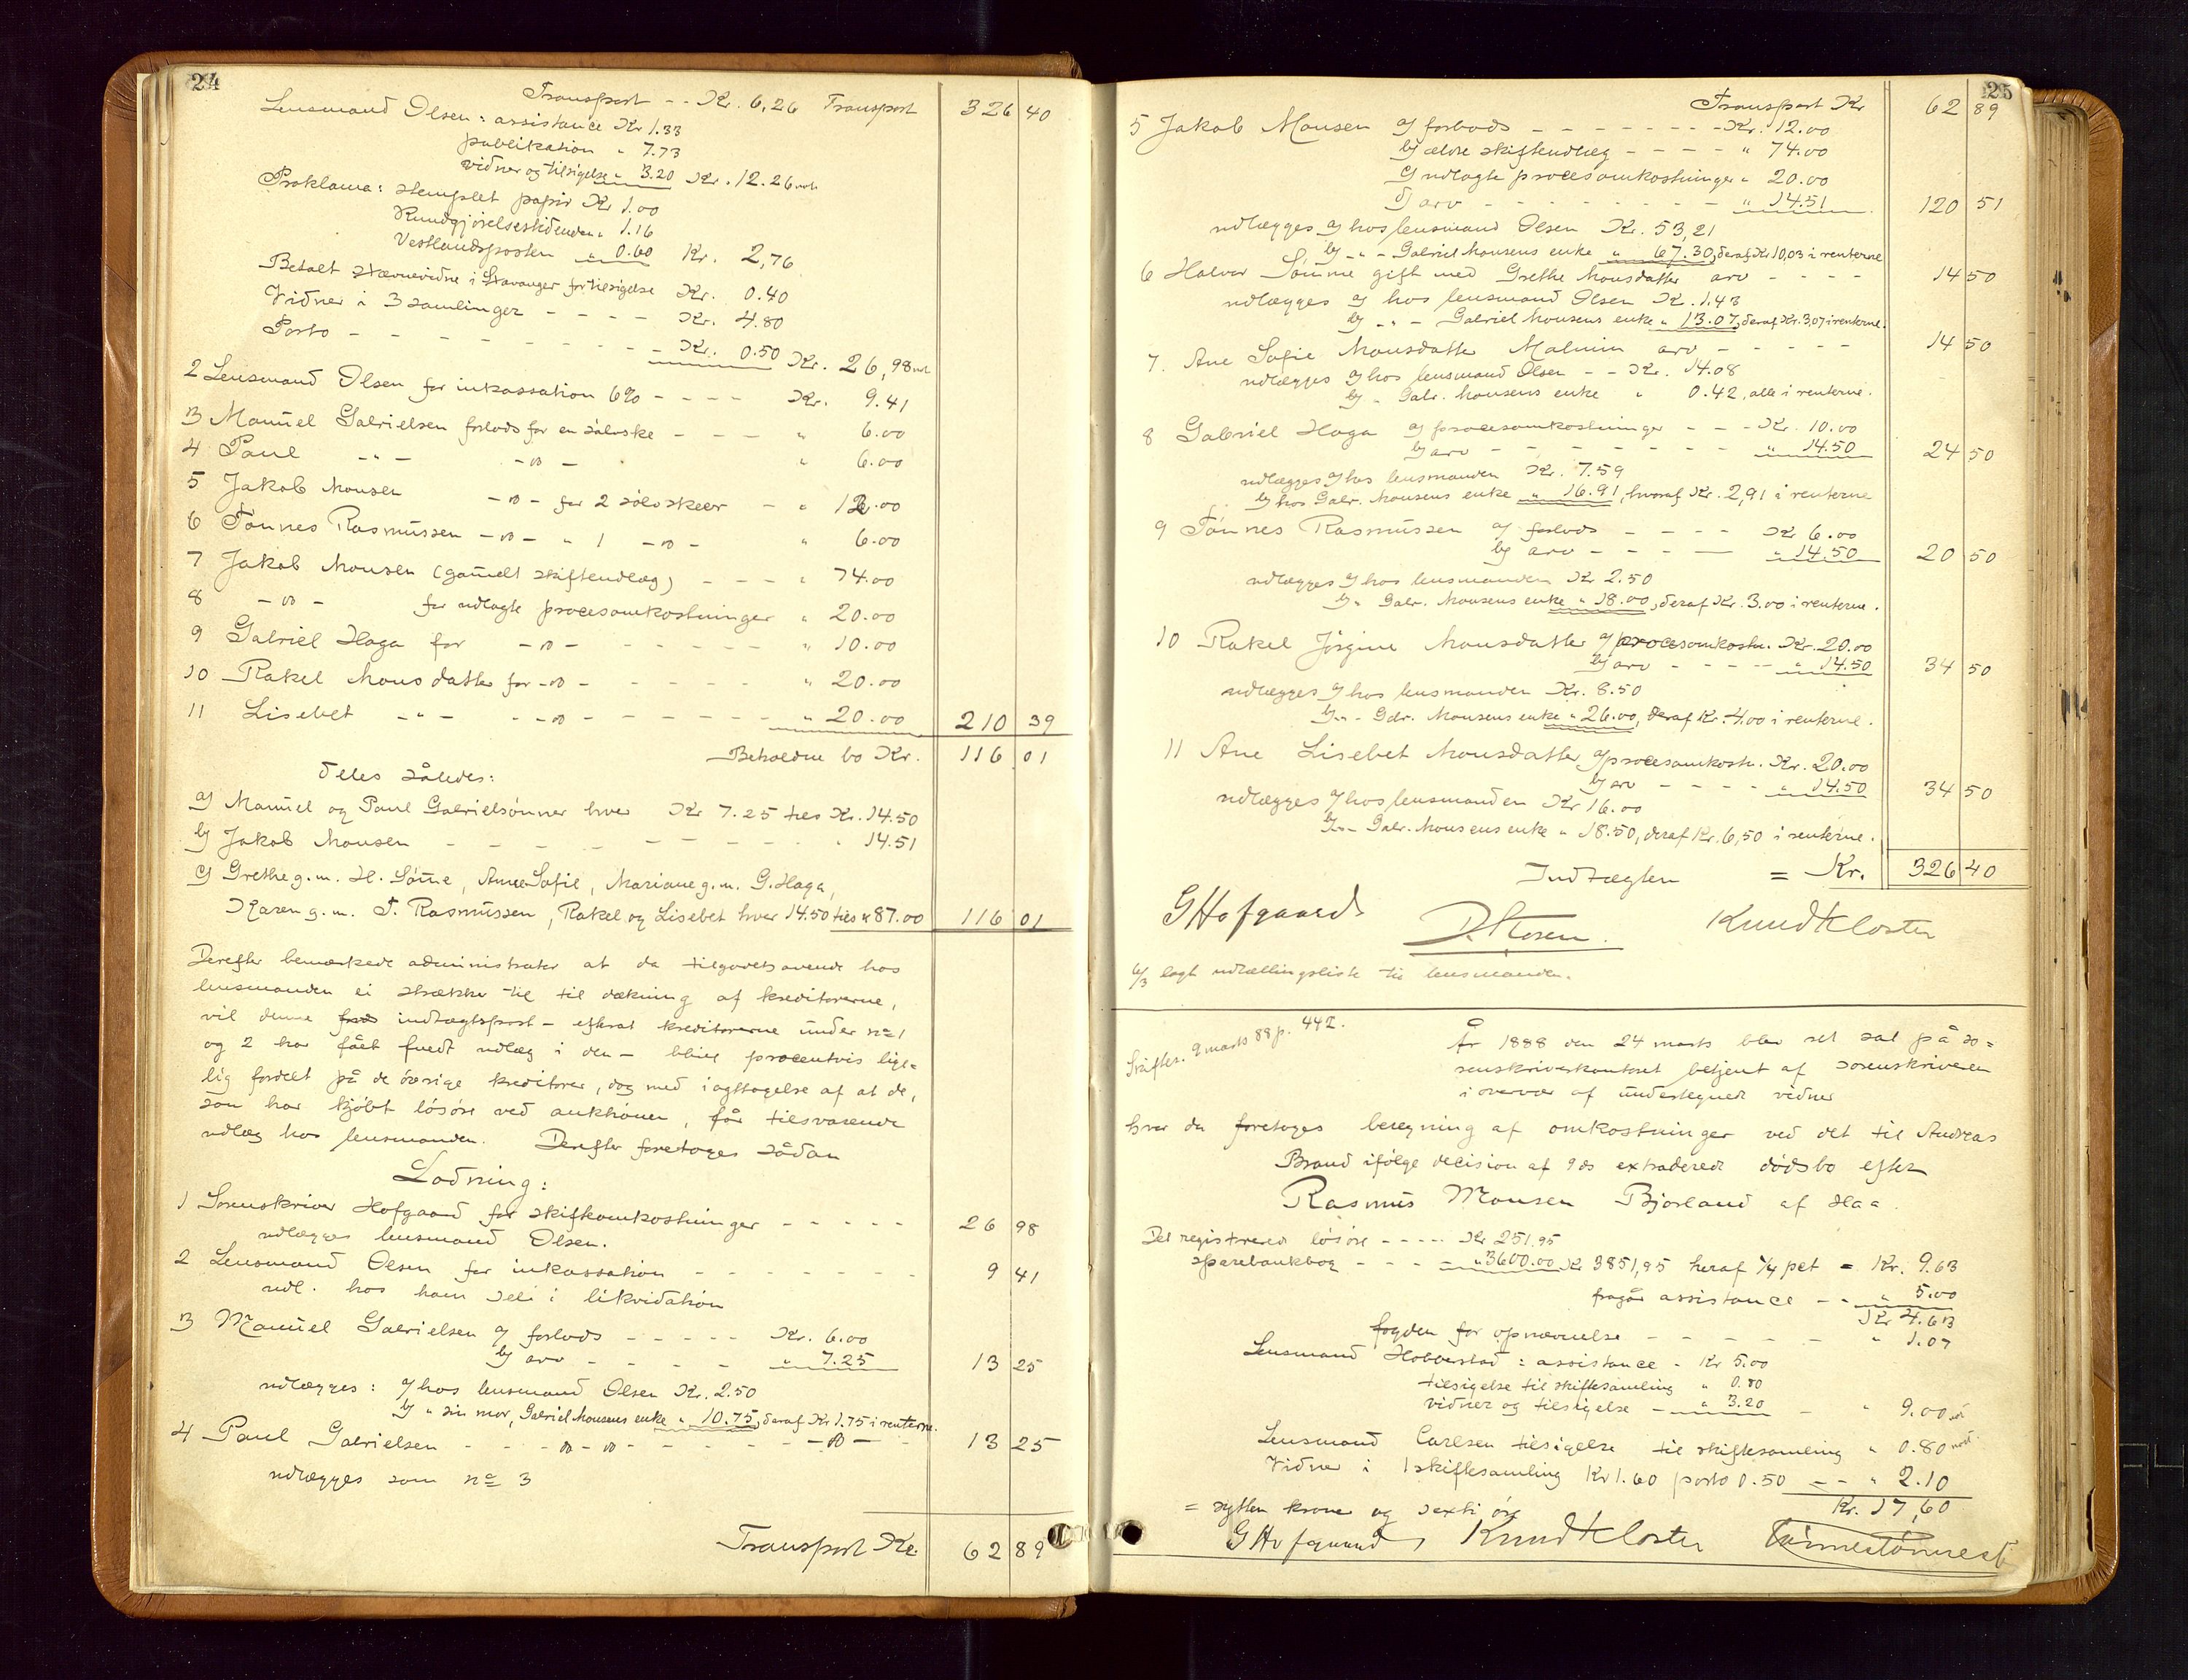 24
Transport -- Kr. 6,26 Transport 326 40
Lensmand Olsen: assistance Kr 1.33
publikation " 7.73
vidner og tilsigelse " 3.20 Kr. 12.26
Proklama: stemplet papir Kr 1.00
Kundgjørelsestidenden " 1.16
Vestlandsposten " 0.60 Kr. 2,76
Betalt stævnevidne i Stavanger for tilsigelse Kr. 0.40
Vidner i 3 samlinger - - - - Kr. 4.80
Porto - - - - - - - - Kr. 0.50 Kr. 26,98
2 Lensmand Olsen for inkassation 6% - - - - Kr. 9.41
3 Manuel Gabrielsen forlods for en sølvske - - - " 6.00
4 Paul - " - - " - " 6.00
5 Jakob Monsen - " - for 2 sølvskeer - " 12.00
6 Tønnes Rasmussen - " - " 1 - " - " 6.00
7 Jakob Monsen (gammelt skifteudlæg) - - - " 74.00
8 - " - for udlagte procesomkostninger " 20.00
9 Gabriel Haga for - " - - - - - - " 10.00
10 Rakel Monsdatter for - " - - - - - - " 20.00
11 Lisebet - " - - - " - - - - - - " 20.00 210 39
Beholdne bo Kr. 116 01
deles således:
a) Manuel og Paul Gabrielsønner hver Kr 7.25 = tils Kr. 14.50
b) Jakob Monsen - - - - - - - - - " 14.51
c) Grethe g. m. H. Sømme, Ane Sofie, Mariane g. m. G. Haga,
Karen g. m. T. Rasmussen, Rakel og Lisebet hver 14.50 tils " 87.00 116 01
Derefter bemærkede administrator at da tilgodehavende hos
lensmanden ei strækker til til dækning af kreditorerne,
vil denne indtægtspost - efterat kreditorerne under no 1
og 2 har fået fuldt udlæg i den - blive procentvis lige=
lig fordelt på de øvrige kreditorer, dog med iagttagelse af at de,
som har kjøbt løsøre ved auktionen, får tilsvarende
udlæg hos lensmanden. Derefter foretages sådan
Lodning:
1 Sorenskriver Hofgaard for skifteomkostninger - - - - - 26 98
udlægges lensmand Olsen.
2 Lensmand Olsen for inkassation - - - - - - - 9 41
udl. hos ham selv i likvidation
3 Manuel Gabrielsen a) forlods - - - - - Kr. 6.00
b) arv - - - - - " 7.25 13 25
udlægges: a) hos lensmand Olsen Kr. 2.50
b) " sin mor, Gabriel Monsens enke " 10.75, deraf Kr 1.75 i renterne.
4 Paul Gabrielsen - - - " - " - - - - - - " - - 13 25
udlægges som no 3
Transport Kr. 62 89
25
Transport Kr 62 89
5 Jakob Monsen a) forlods - - - - - - - Kr. 12.00
b) ældre skifteudlæg - - - - " 74.00
c) udlagte procesomkostninger " 20.00
d) arv - - - - - - - - " 14.51 120 51
udlægges a) hos lensmand Olsen Kr. 53,21
b) - " - Gabriel Monsens enke " 67.30, deraf Kr 10,03 i renterne
6 Halvor Sømme gift med Grethe Monsdatter arv - - - - 14 50
udlægges a) hos lensmand Olsen Kr. 1.43
b) - " - Gabriel Monsens enke " 13.07, deraf Kr. 3,07 i renterne.
7. Ane Sofie Monsdatter Malmin arv - - - - - 14 50
udlægges a) hos lensmand Olsen - - Kr. 14.08
b) " Gabr. Monsens enke " 0.42, alle i renterne.
8 Gabriel Haga a) procesomkostninger - - - Kr. 10.00
b) arv - - - - - - - " 14.50 24 50
udlægges a) hos lensmanden Kr. 7.59
b) hos Gabr. Monsens enke " 16.91, hvoraf Kr. 2,91 i renterne
9 Tønnes Rasmussen a) forlods - - - - Kr 6.00
b) arv - - - - " 14.50 20 50
udlægges a) hos lensmanden Kr 2.50
b) " Gabr. Monsens enke " 18.00, deraf Kr. 3.00 i renterne.
10 Rakel Jørgine Monsdatter a) procesomkostn. Kr. 20.00
b) arv - - - - - " 14.50 34 50
udlægges a) hos lensmanden Kr. 8.50
b) - " - Gabr. Monsens enke " 26.00, deraf Kr. 4.00 i renterne.
11 Ane Lisebet Monsdatter a) procesomkostn. Kr. 20.00
b) arv - - - - " 14.50 34 50
udlægges a) hos lensmanden Kr 16.00
b) - " - Gabr. Monsens enke " 18.50, deraf Kr. 6,50 i renterne.
Indtægten = Kr. 326 40
G Hofgaard D. Rosen. Knud Kloster
6/3 lagt udtællingsliste til lensmanden.
Skiftes. 9 marts 88 p. 442.
År 1888 den 24 marts blev ret sat på so=
renskriverkontoret betjent af sorenskriveren
i overvær af undertegnede vidner
hvor da foretoges beregning af omkostninger ved det til Andreas
Braud ifølge decision af 9 ds extraderede dødsbo efter
Rasmus Monsen Bjorland af Haa.
Det registrerede løsøre - - - - - Kr 251.95
sparebankbog - - - - " 3600.00 Kr 3851,95 heraf 1/4 pct = Kr. 9.63
fragår assistance - - " 5.00
Kr 4.63
fogden for opnævnelse - - - - - - " 1.07
Lensmand Hobberstad: assistance - Kr 5.00
tilsigelse til skiftesamling " 0.80
vidner og tilsigelse - " 3.20 - " 9.00
Lensmand Carlsen tilsigelse til skiftesamling " 0.80
Vidner i 1 skiftesamling Kr 1.60 porto 0.50 - - " 2.10
= sytten kroner og sexti øre Kr. 17,60
G Hofgaard Knud Kloster